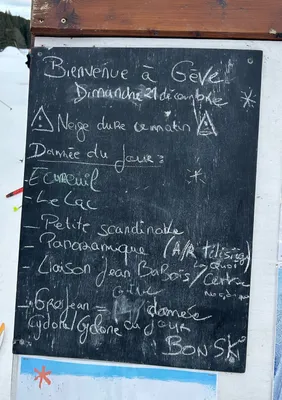 Bienvenue à Gève
Dimanche 21 décembre
Neige dure ce matin
Damée du Jour :
- Ecureuil
- Le Lac
- Petite scandinave
- Panoramique (A/R
- Liaison Jean BaBois /
- Grosjean =
damée
du JOUR
BON SKI